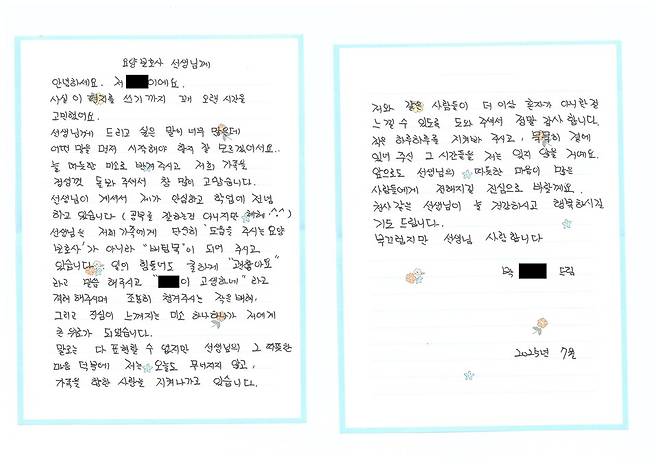 요양 보호사 선생님께
안녕하세요. 저 이에요.
사실 이 편지를 쓰기까지 꽤 오랜 시간을
고민했어요.
선생님께 드리고 싶은 말이 너무 많은데
어떤 말을 먼저 시작해야 할지 잘 모르겠어서요..
늘 따뜻한 미소로 반겨주시고 저희 가족을
정성껏 돌봐 주셔서 참 많이 고맙습니다.
선생님이 계셔서 제가 안심하고 학업에 전념
하고 있습니다 (공부를 잘하는건 아니지만 헤헤 ^.^)
선생님은 저희 가족에게 단순히 '도움을 주시는 요양
보호사'가 아니라 "버팀목"이 되어 주시고
있습니다. 일이 힘들어도 환하게 "괜찮아요"
라고 말씀 해주시고 " 이 고생하네" 라고
격려 해주시며 조용히 챙겨주시는 작은 배려,
그리고 진심이 느껴지는 미소 하나하나가 저에게
큰 위로가 되었습니다.
말로는 다 표현할 수 없지만 선생님의 그 따뜻한
마음 덕분에 저는 오늘도 무너지지 않고,
가족을 향한 사랑을 지켜나가고 있습니다.
저와 같은 사람들이 더 이상 혼자가 아니란걸
느낄 수 있도록 도와 주셔서 정말 감사합니다.
작은 하루하루를 지켜봐 주시고, 묵묵히 곁에
있어 주신 그 시간들을 저는 잊지 않을 거예요.
앞으로도 선생님의 따뜻한 마음이 많은
사람들에게 전해지길 진심으로 바랄게요.
천사 같은 선생님이 늘 건강하시고 행복하시길
기도 드립니다.
부끄럽지만 선생님 사랑합니다
드림
2025년 7월